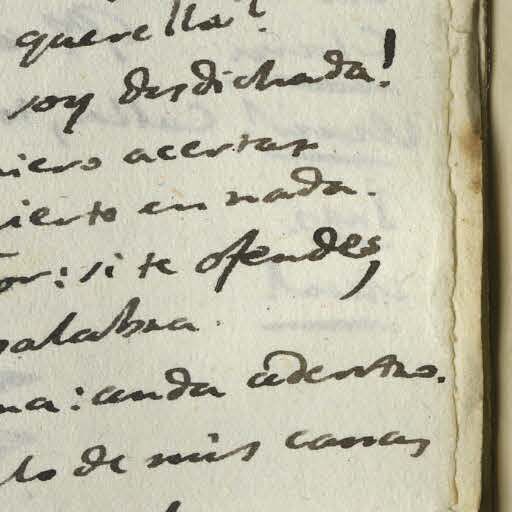 querella?
soy desdichada!
niero acertar
ierto en nada.
or: si te ofendes,
palabra.
na: anda adentro.
lo de mis canas